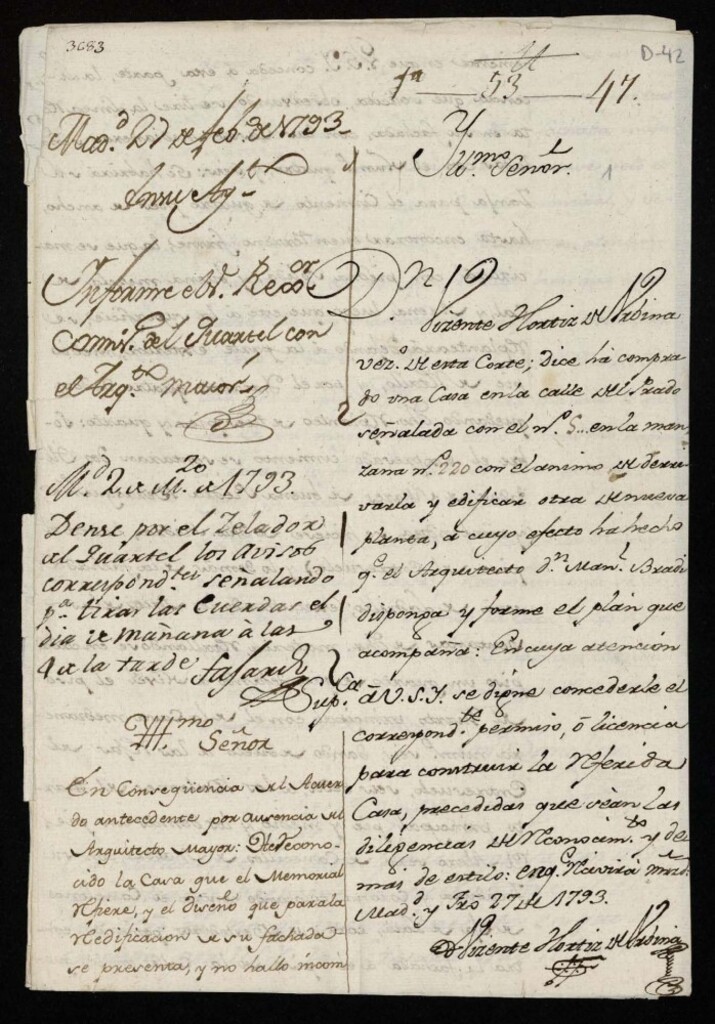 3683
D-42
1ª 53 47.
1
Mad.d 27 de feb.º de 1793
En su Ay.to
Informe el S.r Reg.or
comis.º del Quartel con
el Arq.to maior
M.d 2 de M.zo de 1793.
Dense por el Zelador
al Quartel los Avisos
correspond.tes señalando
p.a tirar las Cuerdas el
dia de Mañana à las
4 de la tarde
Yll.mo Señor
En Conseqüencia del Acuer
do antecedente por ausencia del
Arquitecto Mayor: He recono-
cido la Casa que el Memorial
refiere, y el diseño que para la
reedificacion de su fachada
se presenta, y no hallo incom
Yll.mo Señor.
D.n Vizente Hortiz de Urdina
vez.º de esta Corte; dice há compra
do una Casa en la calle del Prado
señalada con el nº. 5... en la man
zana nº. 220 con el animo de derri
varla y edificar otra de nueva
planta, a cuyo efecto ha hecho
q.e el Arquitecto d.n Man.l Bradi
disponga y forme el plan que
acompaña: En cuya atencion
Sup.ca à V.S.Y. se digne concederle el
correspond.te permiso, ò licencia
para construir la referida
Casa, precedidas que sean las
diligencias de reconocim.to y de
mas de estilo: en q.e recivirá mrd.
Mad.d y Fro 27 de 1793.
Vizente Hortiz de Urdina